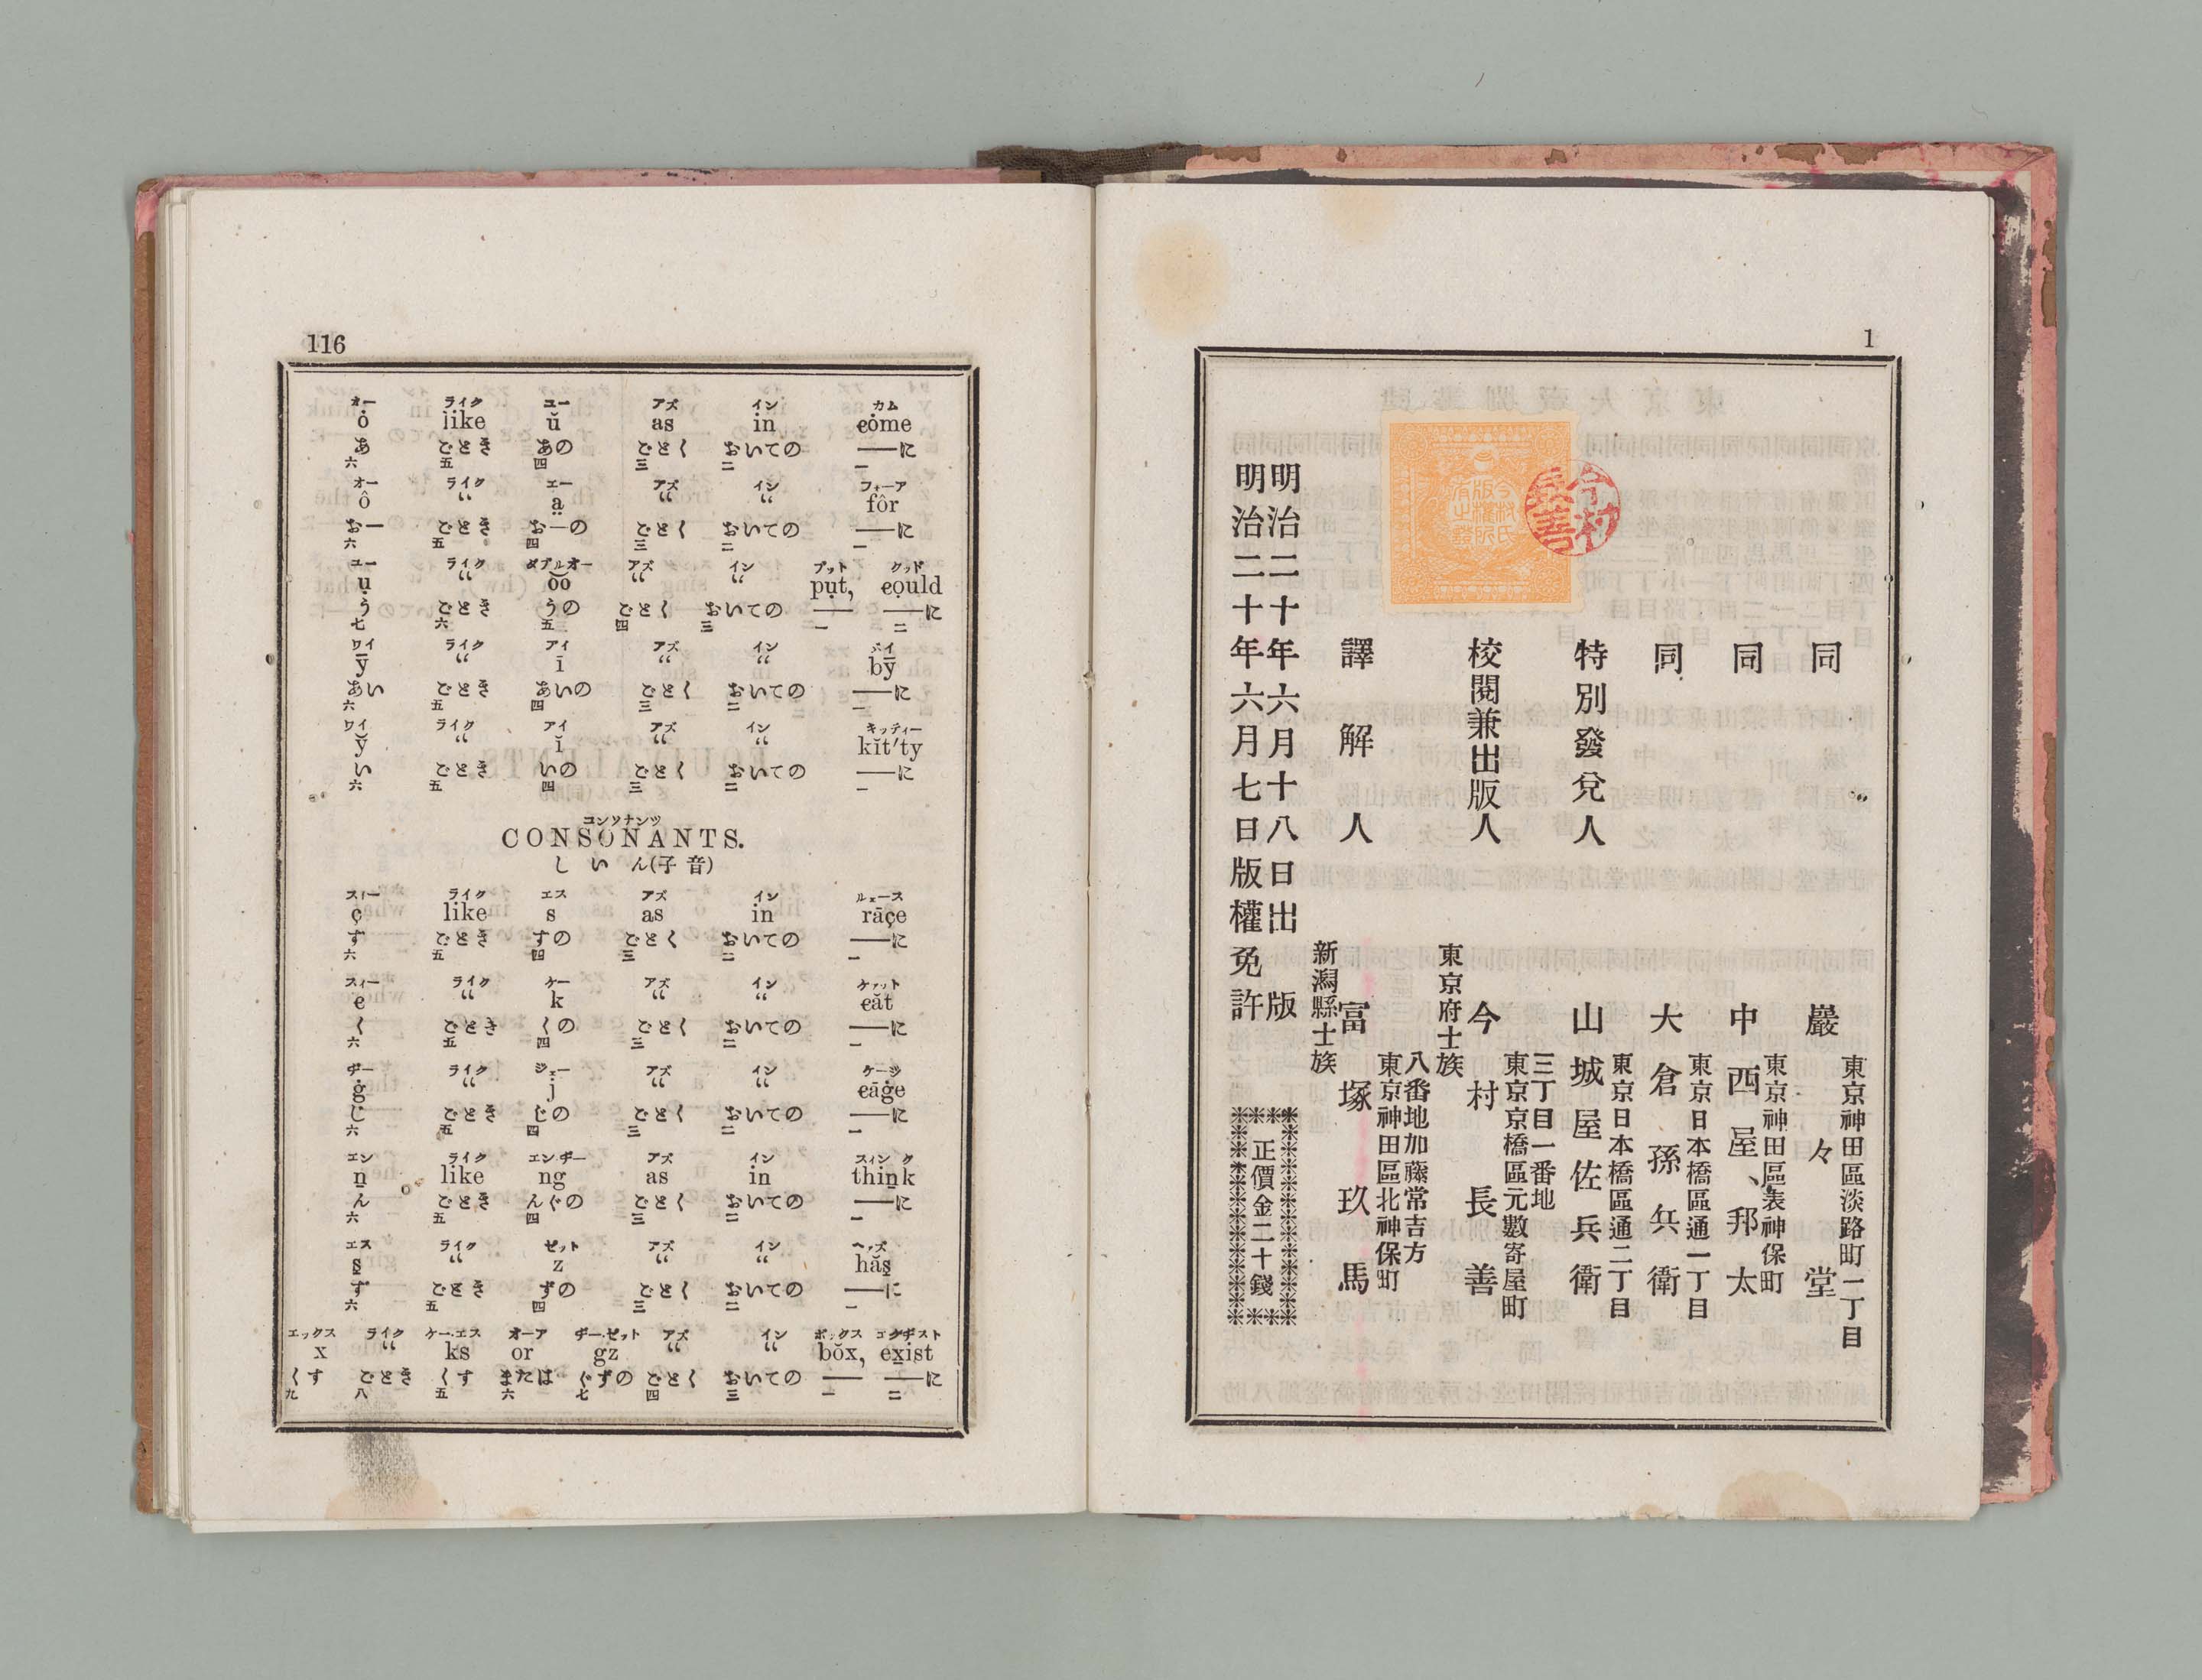 116
オー ライク ユー アズ イン カム
ȯ like ŭ as in cȯme
あ ごとき あの ごとく おいての ──に
六 五 四 三 二 一
オー ライク エー アズ イン フォーア
ô “ a̤ “ “ fôr
おー ごとき お―の ごとく おいての ──に
六 五 四 三 二 一
ユー ライク ダブルオー アズ イン プット クッド
ṳ “ o͝o “ “ pṳt, co̤uld
う ごとき うの ごとく おいての ── ──に
七 六 五 四 三 一 二
ワイ ライク アイ アズ イン バイ
ȳ “ ī “ “ bȳ
あい ごとき あいの ごとく おいての ──に
六 五 四 三 二 一
ワイ ライク アイ アズ イン キッティー
y̆ “ ĭ “ “ kĭt′ty
い ごとき いの ごとく おいての ──に
六 五 四 三 二 一
コンソナンツ
CONSONANTS.
しいん(子音)
スィー ライク エス アズ イン ルェース
ç like s as in rāçe
す ごとき すの ごとく おいての ──に
六 五 四 三 二 一
スィー ライク ケー アズ イン ケァット
c “ k “ “ căt
く ごとき くの ごとく おいての ──に
六 五 四 三 二 一
ヂー ライク ジェー アズ イン ケージ
ġ “ j “ “ cāġe
じ ごとき じの ごとく おいての ──に
六 五 四 三 二 一
エン ライク エンヂー アズ イン スィンク
n̠ like ng as in thin̠k
ん ごとき んぐの ごとく おいての ──に
六 五 四 三 二 一
エス ライク ゼット アズ イン ヘァズ
s̱ “ z “ “ hăs̱
ず ごとき ずの ごとく おいての ──に
六 五 四 三 二 一
エックス ライク ケー.エス オーア ヂー.ゼット アズ イン ボックス エクヂスト
x “ ks or gz “ “ bŏx, ex̱ist
くす ごとき くす または ぐずの ごとく おいての ── ──に
九 八 五 六 七 四 三 一 二
1
東京神田區淡路町一丁目
同 巖々堂
東京神田區表神保町
同 中西屋邦太
東京日本橋區通一丁目
同 大倉孫兵衛
東京日本橋區通二丁目
特別發兌人 山城屋佐兵衛
今村長善
今村氏
版權所
有之證
東京府士族
校閲兼出版人 今村長善
東京京橋區元數寄屋町
三丁目一番地
新潟縣士族
譯解人 富塚玖馬
東京神田區北神保町
八番地加藤常吉方
明治二十年六月十八日出版
明治二十年六月七日版權免許
正價金二十錢